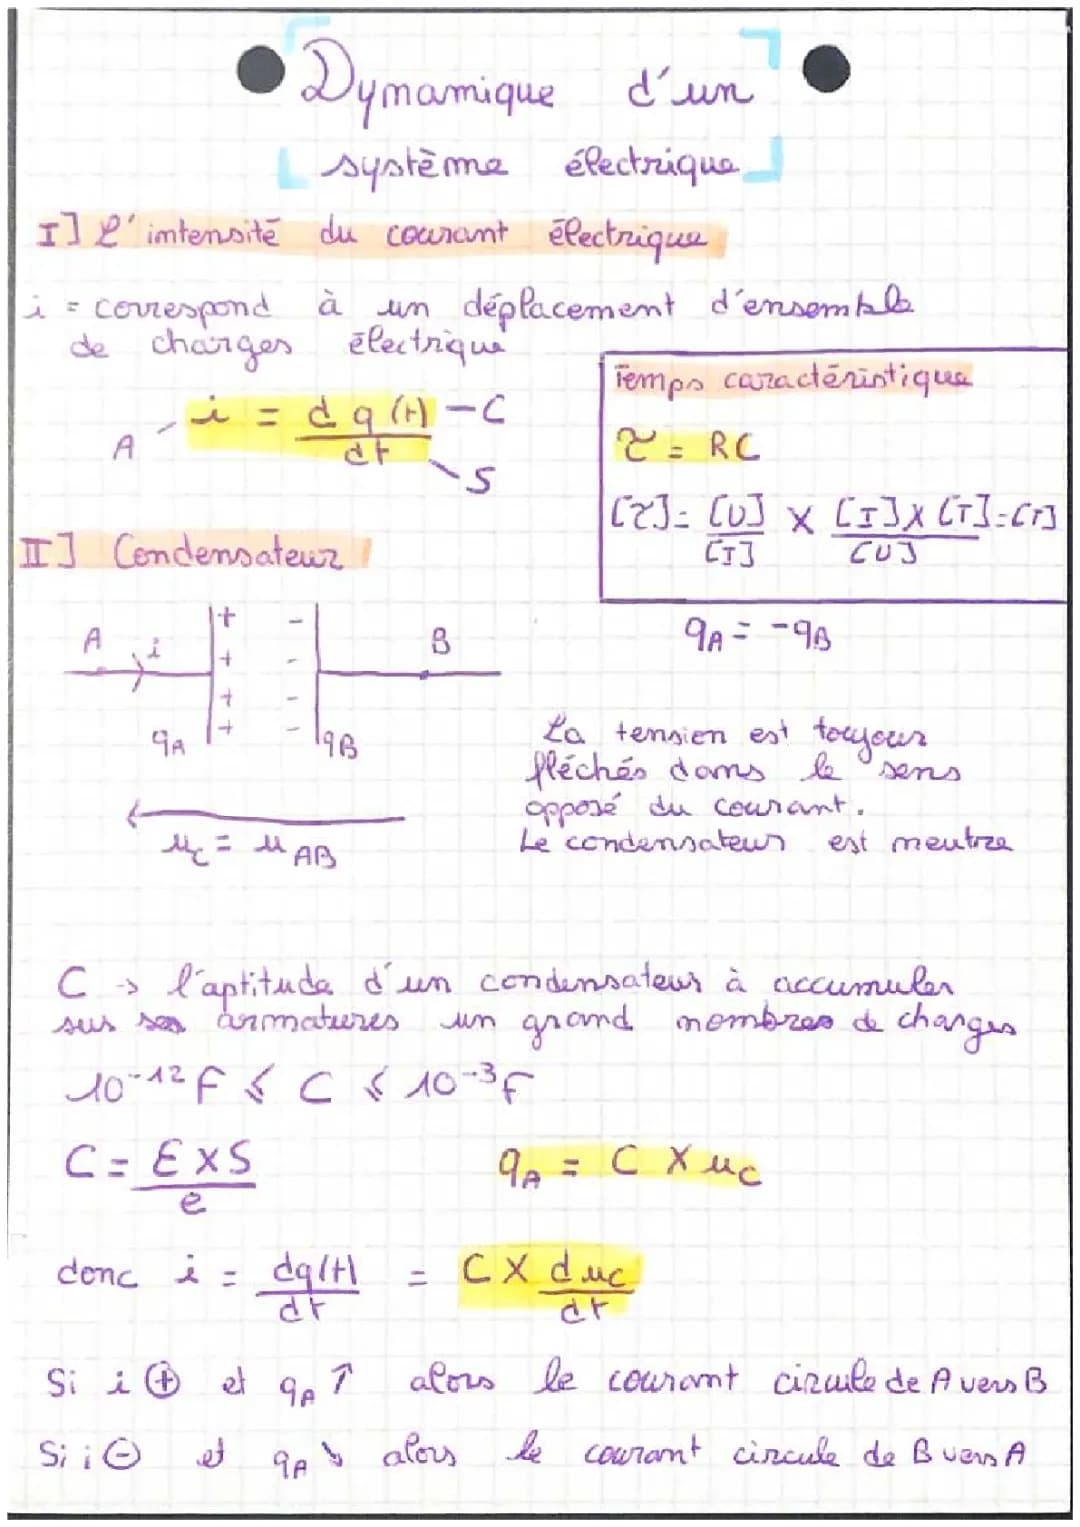 Dynamique d'un
système électrique
I] L'intensité du courant électrique
i = correspond à un déplacement d'ensemble
de charges électrique
A i = dq(t) / dt — C
S
Temps caractéristique
τ = RC
[τ] = [U]/[I] × [I]×[T]/[U] = [T]
II] Condensateur
A i + - B
+ -
+ -
+ -
qA qB
uc = uAB
qA = -qB
La tension est toujours
fléchés dans le sens
opposé du courant.
Le condensateur est neutre
C → l'aptitude d'un condensateur à accumuler
sur ses armatures un grand nombres de charges
10⁻¹² F ≤ C ≤ 10⁻³ F
C = Ɛ×S / e
qA = C × uc
donc i = dq(t)/dt = C × duc/dt
Si i ⊕ et qA ↑ alors le courant circule de A vers B
Si i ⊖ et qA ↘ alors le courant circule de B vers A